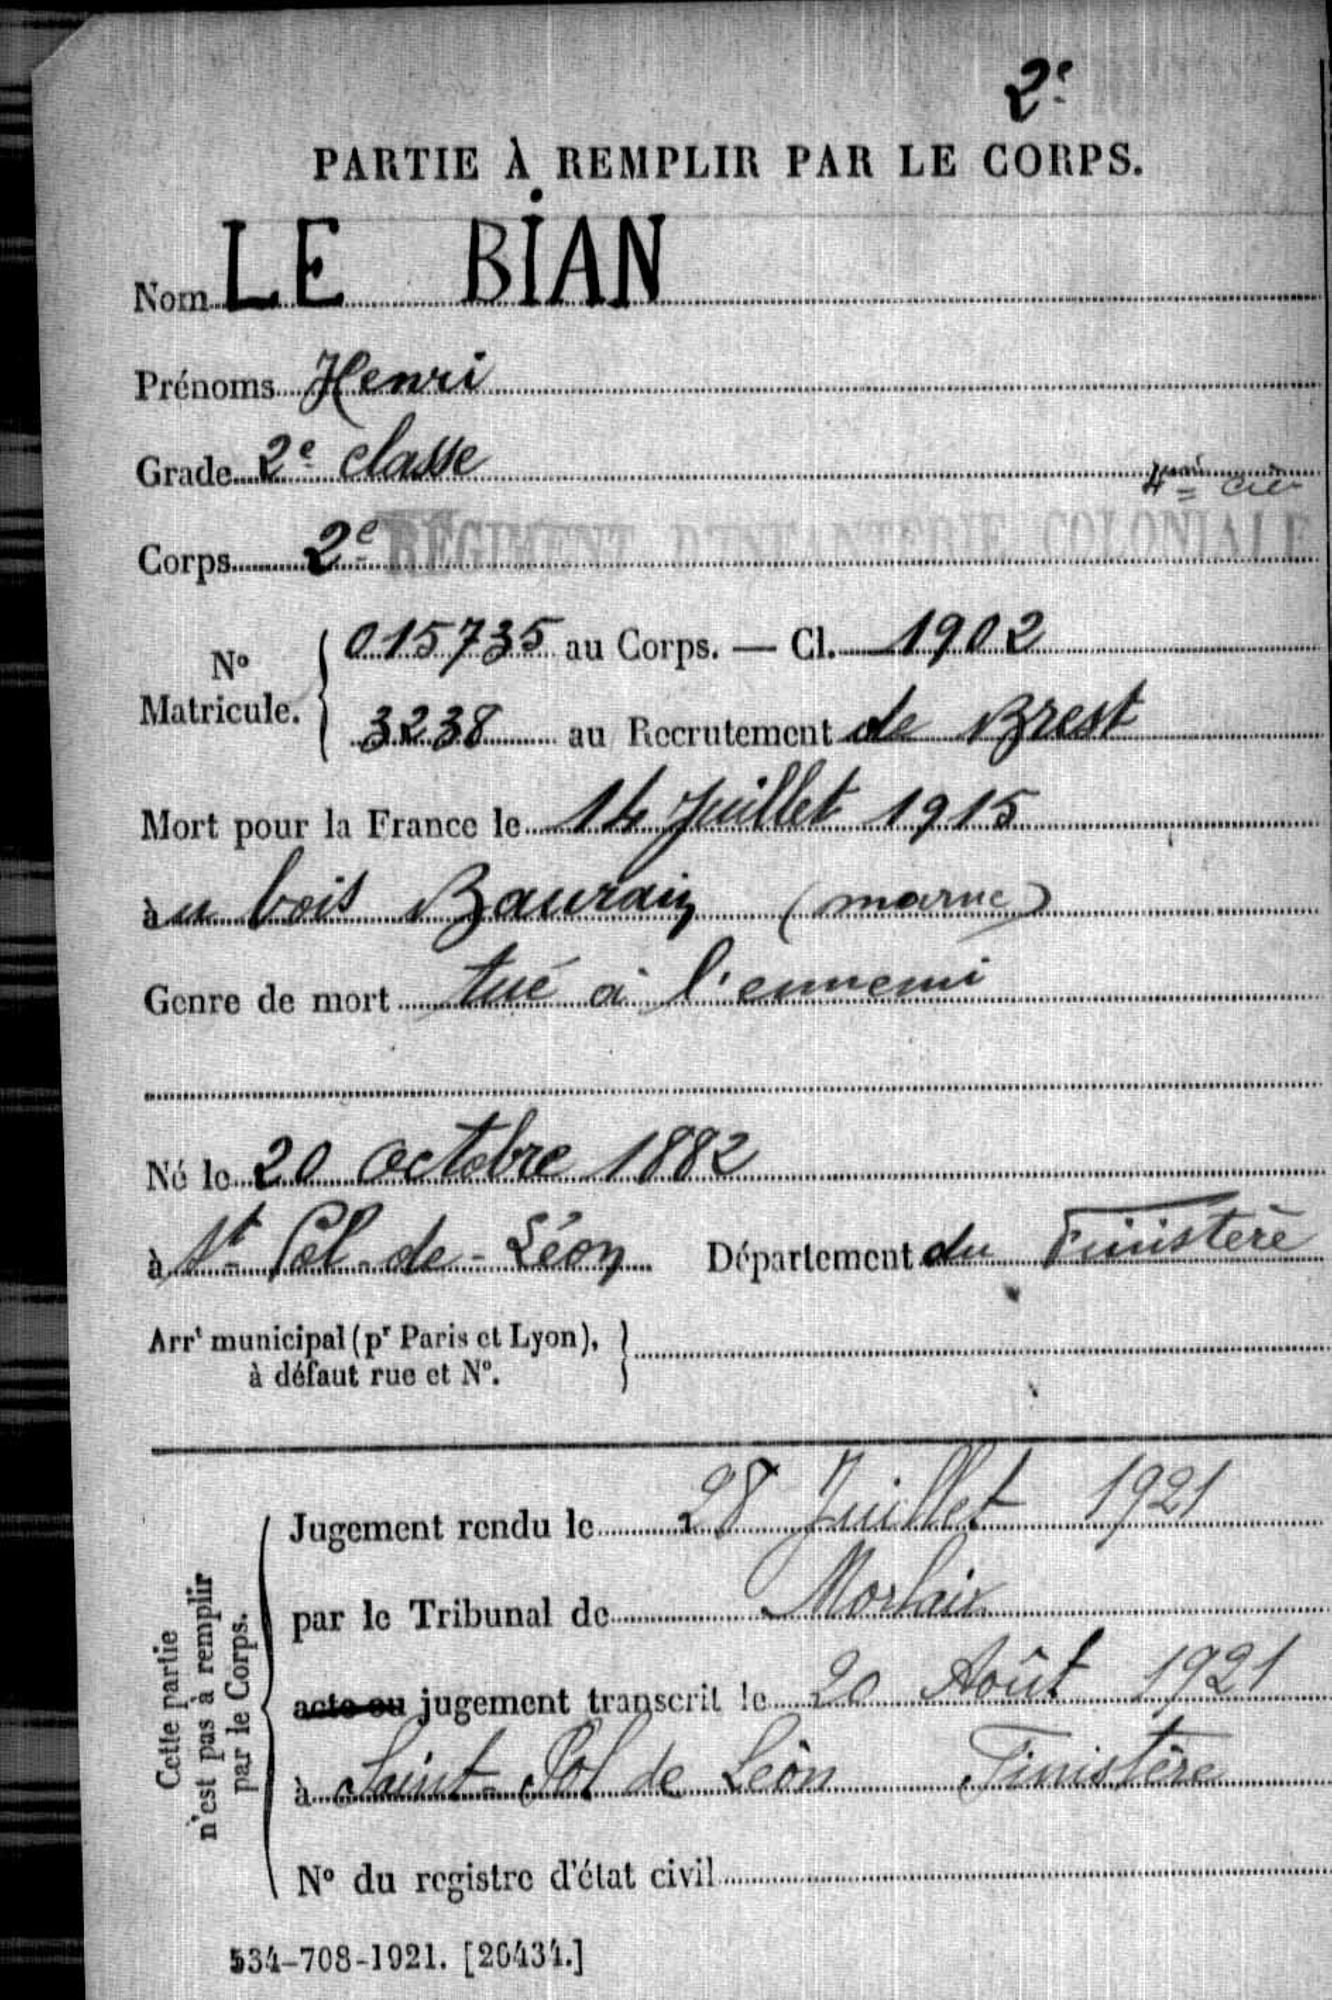 2e
PARTIE À REMPLIR PAR LE CORPS.
Nom LE BIAN
Prénoms Henri
Grade 2e classe
4me Cie
Corps 2e RÉGIMENT D'INFANTERIE COLONIALE
N° Matricule. { 015735 au Corps. — Cl. 1902
3238 au Recrutement de Brest
Mort pour la France le 14 Juillet 1915
àu bois Baurain (marne)
Genre de mort tué à l'ennemi
Né le 20 octobre 1882
à St Pol-de-Léon Département du Finistère
Arrt municipal (pr Paris et Lyon), }
à défaut rue et N°.
Cette partie
n'est pas à remplir
par le Corps.
Jugement rendu le 28 Juillet 1921
par le Tribunal de Morlaix
acte ou jugement transcrit le 20 Août 1921
à Saint-Pol de Léon Finistère
N° du registre d'état civil
534-708-1921. [26434.]